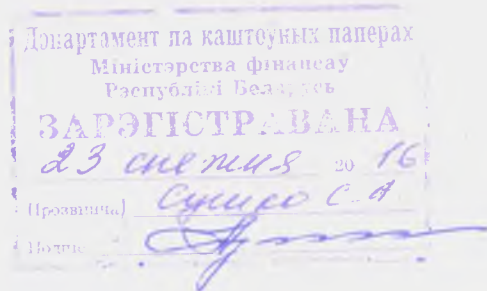 Дэпартамент па каштоуных паперах
Міністэрства фінансау
Рэспублікі Беларусь
ЗАРЭГІСТРАВАНА
23 снежня 20 16
(Прозвішча) Сушко С.А
Подпіс